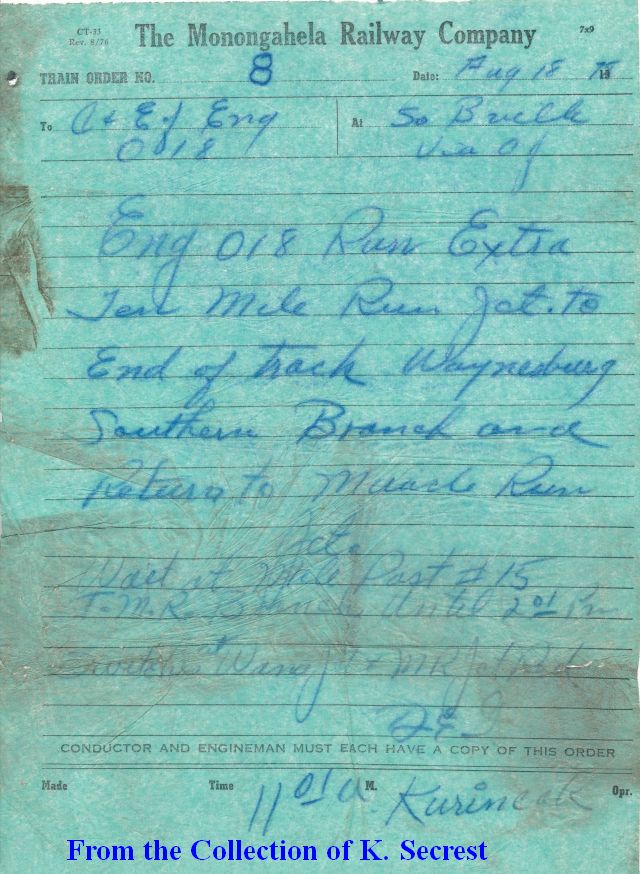 CT-35
Rev. 8/76
The Monongahela Railway Company
7x9
TRAIN ORDER NO. 8 Date: Aug 18 19
To C & E of Eng At So Bvlle
018 Via Oj
Eng 018 Run Extra
Ten Mile Run Jct. to
End of track Waynesburg
Southern Branch and
Return to Miracle Run
Jct.
Wait at Mile Post #15
T.M.R. Branch Until 2 01 Pm
Switches at Wana Jct & MR Jct
CONDUCTOR AND ENGINEMAN MUST EACH HAVE A COPY OF THIS ORDER
Made Time 11 01 A. M. Opr.
From the Collection of K. Secrest